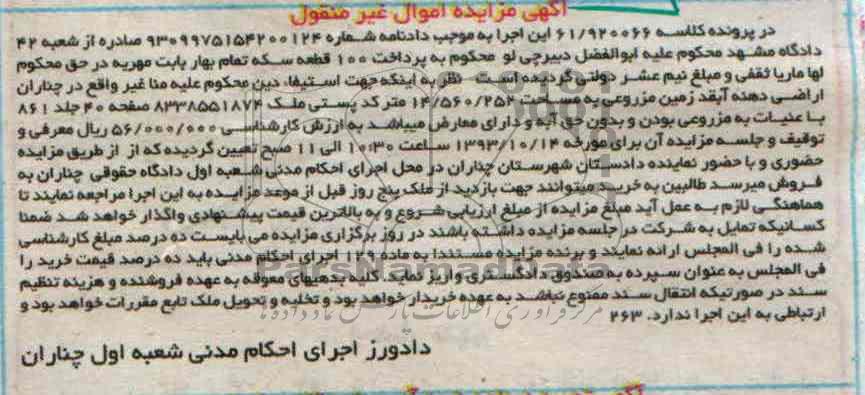 آگهی مزایده اموال غیر منقول
در پرونده کلاسه ۶۱/۹۲۰۰۶۶ این اجرا به موجب دادنامه شماره ۹۳۰۹۹۷۵۱۵۴۲۰۰۱۲۴ صادره از شعبه ۴۲
دادگاه مشهد محکوم علیه ابوالفضل دبیرچی لو محکوم به پرداخت ۱۰۰ قطعه سکه تمام بهار بابت مهریه در حق محکوم
لها ماریا ثقفی و مبلغ نیم عشر دولتی گردیده است نظر به اینکه جهت استیفاء دین محکوم علیه منا غیر واقع در چناران
اراضی دهنه آبقد زمین مزروعی به مساحت ۱۴/۵۶۰/۲۵۲ متر کد پستی ملک ۸۳۳۸۵۵۱۸۷۴ صفحه ۴۰ جلد ۸۶۱
با عنیات به مزروعی بودن و بدون حق آبه و دارای معارض میباشد به ارزش کارشناسی ۵۶/۰۰۰/۰۰۰ ریال معرفی و
توقیف و جلسه مزایده آن برای مورخه ۱۳۹۳/۱۰/۱۴ ساعت ۱۰:۳۰ الی ۱۱ صبح تعیین گردیده که از از طریق مزایده
حضوری و با حضور نماینده دادستان شهرستان چناران در محل اجرای احکام مدنی شعبه اول دادگاه حقوقی چناران به
فروش میرسد طالبین به خرید میتوانند جهت بازدید از ملک پنج روز قبل از موعد مزایده به این اجرا مراجعه نمایند تا
هماهنگی لازم به عمل آید مبلغ مزایده از مبلغ ارزیابی شروع و به بالاترین قیمت پیشنهادی واگذار خواهد شد ضمنا
کسانیکه تمایل به شرکت در جلسه مزایده داشته باشند در روز برگزاری مزایده می بایست ده درصد مبلغ کارشناسی
شده را فی المجلس ارائه نمایند و برنده مزایده مستندا به ماده ۱۲۹ اجرای احکام مدنی باید ده درصد قیمت خرید را
فی المجلس به عنوان سپرده به صندوق دادگستری واریز نماید. کلیه بدهیهای معوقه به عهده فروشنده و هزینه تنظیم
سند در صورتیکه انتقال سند ممنوع نباشد به عهده خریدار خواهد بود و تخلیه و تحویل ملک تابع مقررات خواهد بود و
ارتباطی به این اجرا ندارد. ۲۶۳
دادورز اجرای احکام مدنی شعبه اول چناران
ParsNamadData
مرکز فرآوری اطلاعات پارس نماد داده ها